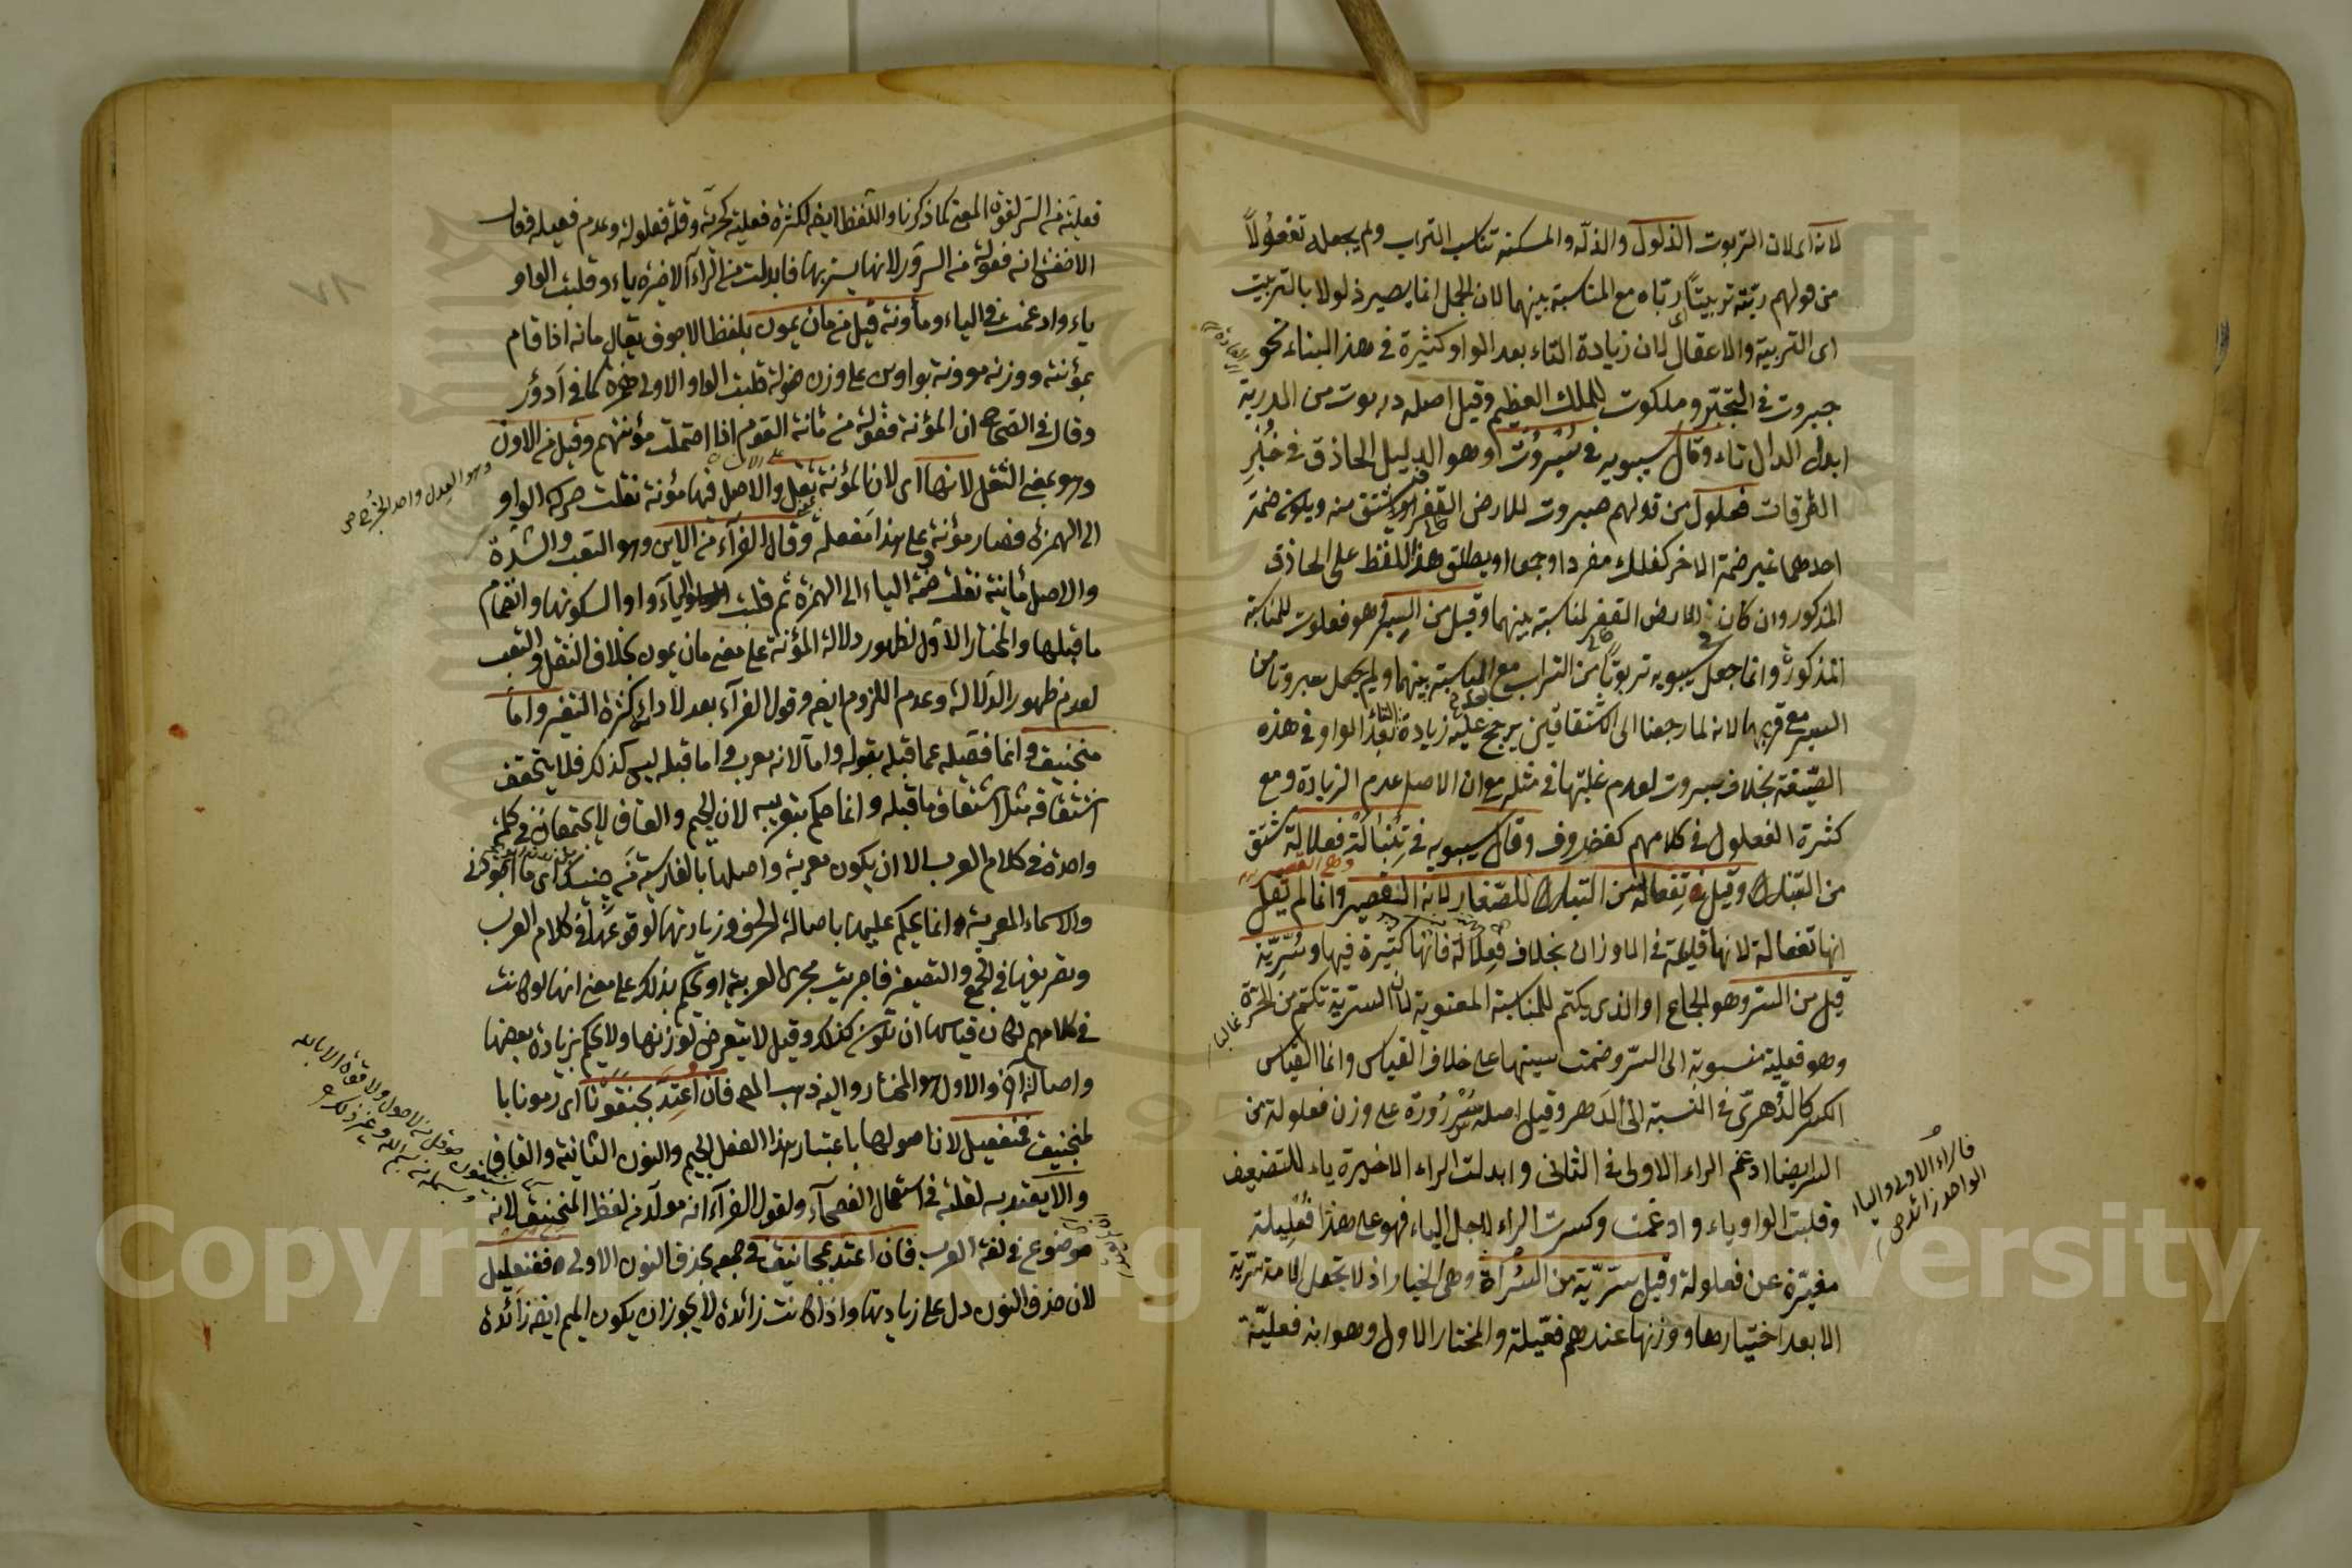 لانه اى لان التربوت الذلول والذلّة والمسكنة تناسب التراب ولم يجعله تفعولاً
من قولهم ربّته تربيتاً اى ربّاه مع المناسبة بينهما لان الجمل انما يصير ذلولا بالتربيت
اى التربية والاعقال لان زيادة التاء بعد الواو كثيرة فى هذا البناء نحو
جبروت فى التجبّر وملكوت للملك العظيم وقيل اصله دربوت من الدربة
ابدل الدال تاء وقال سيبويه فى سُبْرُوت وهو الدليل الحاذق فى خُبْرِ
الطرقات فعلول من قولهم سبروت للارض القفر ويشتق منه ويكون ضمة
احدهما غير ضمة الاخر كفلك مفردا وجمعا ويطلق هذا اللفظ على الحاذق
المذكور وان كان للارض القفر لمناسبة بينهما وقيل من السبر فهو فعلوت للمناسبة
المذكورة وانما جعل سيبويه تربوتا من التراب مع المناسبة بينهما ولم يجعل سبروتا من
السبر مع قربهما لانه لما رجعنا الى الاشتقاقين يرجح عليه زيادة التاء بعد الواو فى هذه
الصّيغة بخلاف سبروت لعدم غلبتها فى مثله مع ان الاصل عدم الزيادة ومع
كثرة الفعلول فى كلامهم كغضروف وقال سيبويه فى تِنْبَالَة فعلالة مشتق
من التنبال وقيل تِفعالة من النبل للصّغار لانه القصير وانما لم يقل
انها تفعالة لانها قليلة فى الاوزان بخلاف فِعْلَالَة فانها كثيرة فيها وسُرِّيَّة
قيل من السر وهو الجماع او الذى يكتم للمناسبة المعنوية لان السرية تكتم من الحرّة غالبا
وهو فعلية منسوبة الى السّر وضمت سينها على خلاف القياس وانما القياس
الكسر كالدُّهرىّ فى النسبة الى الدَهر وقيل اصله سُرُّورَة على وزن فعلولة من
السر ايضا ادغم الراء الاولى فى الثانى وابدلت الراء الاخيرة ياء للتضعيف
وقلبت الواو ياء وادغمت وكسرت الراء لاجل الياء فهو على هذا فُعْلِيلة
مغيّرة عن فعلولة وقيل سُرّيّة من السُرَاة وهى الخيار اذ لا تجعل الامة سُرّية
الا بعد اختيارها ووزنها عندهم فعّيلة والمختار الاول وهو انه فعليّة
فالراء الاولى والياء
الواحد زائدة
فعلية من السر لقوة المعنى كما ذكرنا واللفظ ايضا لكثرة فعلية كحرية وقلة فعلولة وعدم فعيلة فقال
الاخفش انه فعولة من السرور لانها يسر بها فابدلت من الراء الاخيرة ياء وقلبت الواو
ياء وادغمت فى الياء ومأونة قيل من مان يمون بلفظ الاجوف يقال مانه اذا قام
بمؤنته ووزنه موونة بواوين على وزن فعولة قلبت الواو الاولى همزة كما فى أدؤر
وقال فى الصحاح ان المؤنة فعولة من مأنة القوم اذا احتملت مؤنتهم وقيل من الاون
وهو بمعنى الثقل لانها اى لان المؤنة ثقل والاصل فيها مؤنة نقلت حركة الواو
الى الهمزة فصار مؤنة وعلى هذا مَفعلة وقال الفرّاء من الاين وهو التعب والشدة
والاصل مأينة نقلت ضمة الياء الى الهمزة ثم قلبت الياء واوا لسكونها وانضمام
ما قبلها والمختار الاول لظهور دلالة المؤنة على معنى مان يمون بخلاف الثقل والتعب
لعدم ظهور الدلالة وعدم اللزوم ايضا وقول الفرّاء بعد لادائه كثرة التغير واما
منجنيق وانما فصّله عما قبله بقوله واما لانه معرب واما قبله ليس كذلك فلا يتحقق
اشتقاقه مثل اشتقاق ما قبله وانما حكم بتعريبه لان الجيم والقاف لا يجتمعان فى كلمة
واحدة فى كلام العرب الا ان يكون معربة واصلها بالفارسية مَن چه نيك اى ما اجودنى
والاسماء المعربة انما يحكم عليها باصالة الحرف وزيادتها لوقوعها فى كلام العرب
وتصريفها فى الجمع والتصغير فاجريت مجرى العربية او يحكم بذلك على معنى انها لو كانت
فى كلامهم لكان قياسها ان تكون كذلك وقيل لا يتعرض لوزنها ولا يحكم بزيادة بعضها
واصالة آخر والاول هو المختار واليه ذهب المص فان اعتد بجنقونا اى رمونا با
لمنجنيق فمنفعيل لان اصولها باعتبار هذا الفعل الجيم والنون الثانية والقاف
والا يعتد به لقلته فى استعمال الفصحاء ولقول الفرّاء انه مولّد من لفظ المنجنيق لانه
موضوع فى لغة العرب فان اعتد بمجانيق فى جمعه بحذف النون الاولى ففنعليل
لان حذف النون دل على زيادتها واذا كانت زائدة لا يجوز ان يكون الميم ايضا زائدة
وهو العدل واحد الخرج ص
٧٨
Copyright © King Saud University